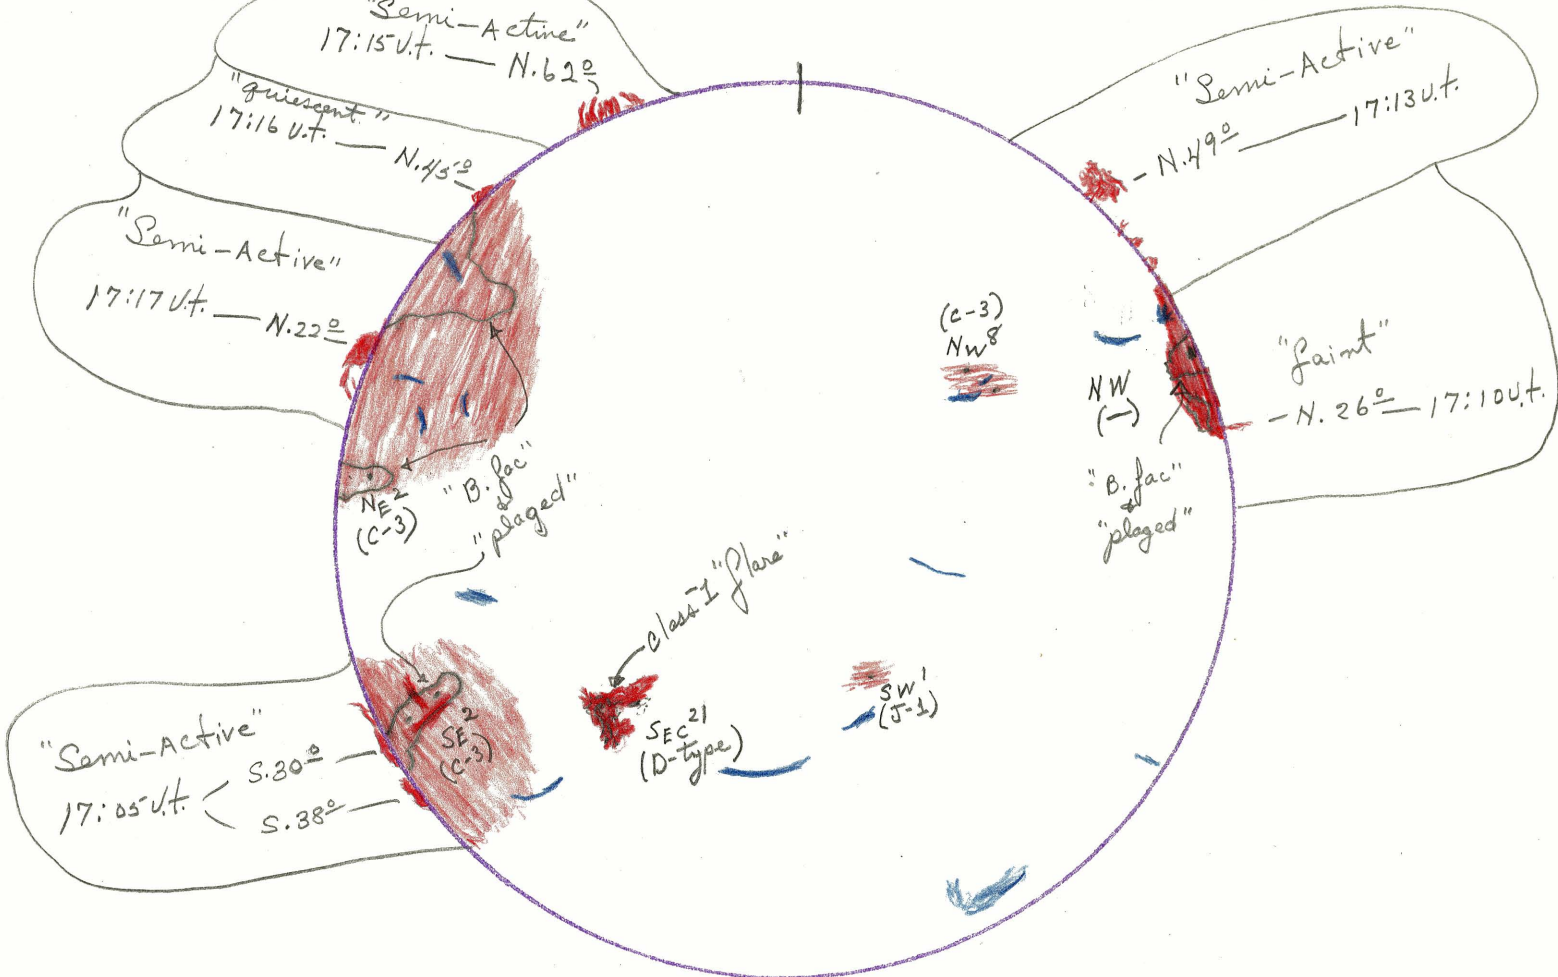 "Semi-Active"
17:15 U.t. — N.62º
"quiescent"
17:16 U.t. — N.45º
"Semi-Active"
17:17 U.t. — N.22º
"Semi-Active"
— N.49º — 17:13 U.t.
"faint"
— N. 26º — 17:10 U.t.
(C-3)
NW8
NW
(—)
"B. fac"
&
"plaged"
NE2
(C-3)
"B. fac"
&
"plaged"
class-1 "flare"
SE2
(C-3)
SEC21
(D-type)
SW1
(J-1)
"Semi-Active"
17:05 U.t. < S.30º —
S.38º —